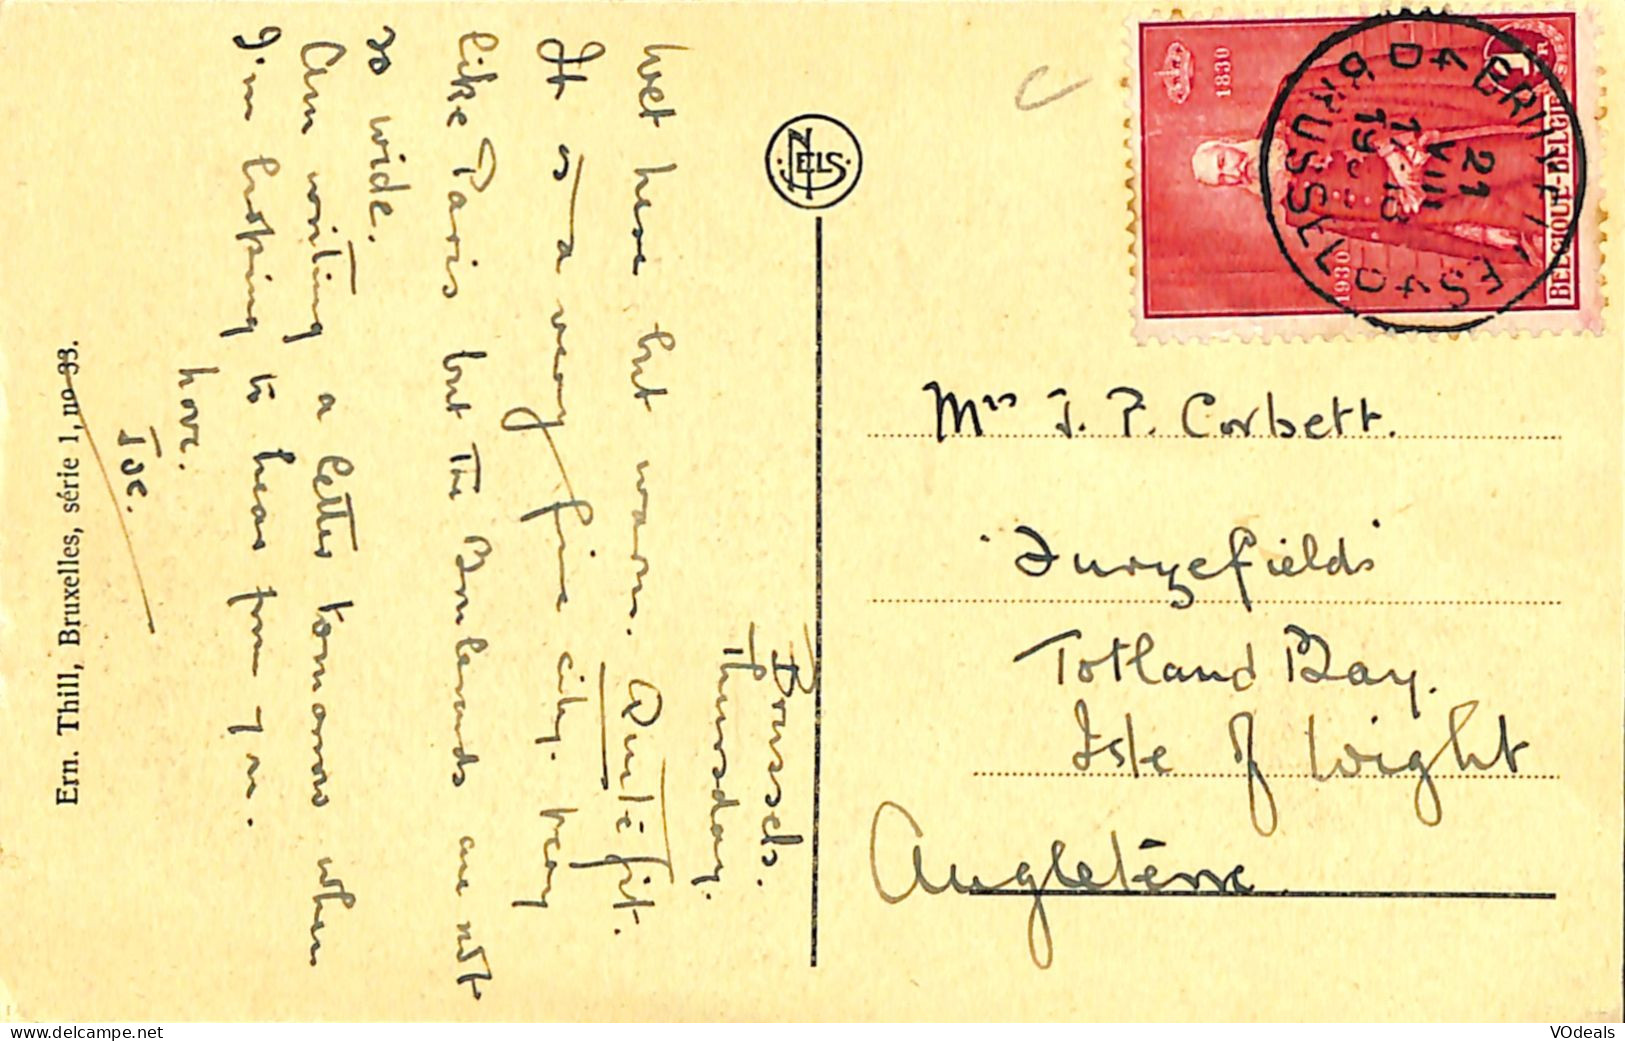 Brussels.
Thursday.
Wet here but warm. Quite fit.
It is a very fine city. Very
like Paris but the Boulevards are not
so wide.
Am writing a letter tomorrow when
I'm hoping to hear from you.
love.
Joe.
Ern. Thill, Bruxelles, série 1, no 33.
NELS
1830
1930
1 FR
BELGIQUE-BELGIË
4 BRUXELLES 4
D BRUSSEL D
21
VIII
18
19
Mrs J. P. Corbett.
'Furzefields'
Totland Bay.
Isle of Wight
Angleterre
VOdeals
www.delcampe.net